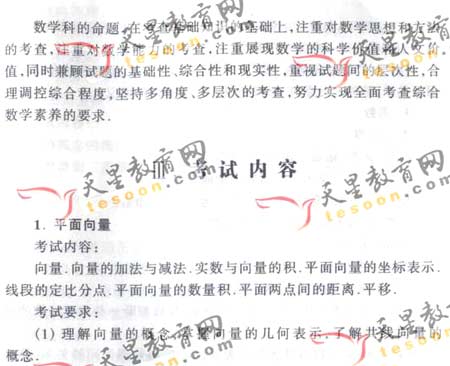 数学科的命题,在考查基础知识的基础上,注重对数学思想和方法
的考查,注重对数学能力的考查,注重展现数学的科学价值和人文价
值,同时兼顾试题的基础性、综合性和现实性,重视试题间的层次性,合
理调控综合程度,坚持多角度、多层次的考查,努力实现全面考查综合
数学素养的要求.
考试内容
1. 平面向量
考试内容:
向量.向量的加法与减法.实数与向量的积.平面向量的坐标表示.
线段的定比分点.平面向量的数量积.平面两点间的距离.平移.
考试要求:
(1) 理解向量的概念,掌握向量的几何表示,了解共线向量的
概念.
天星教育网
tesoon.com
天星教育网
tesoon.com
天星教育网
tesoon.com
天星教育网
tesoon.com
天星教育网
tesoon.com
天星教育网
tesoon.com